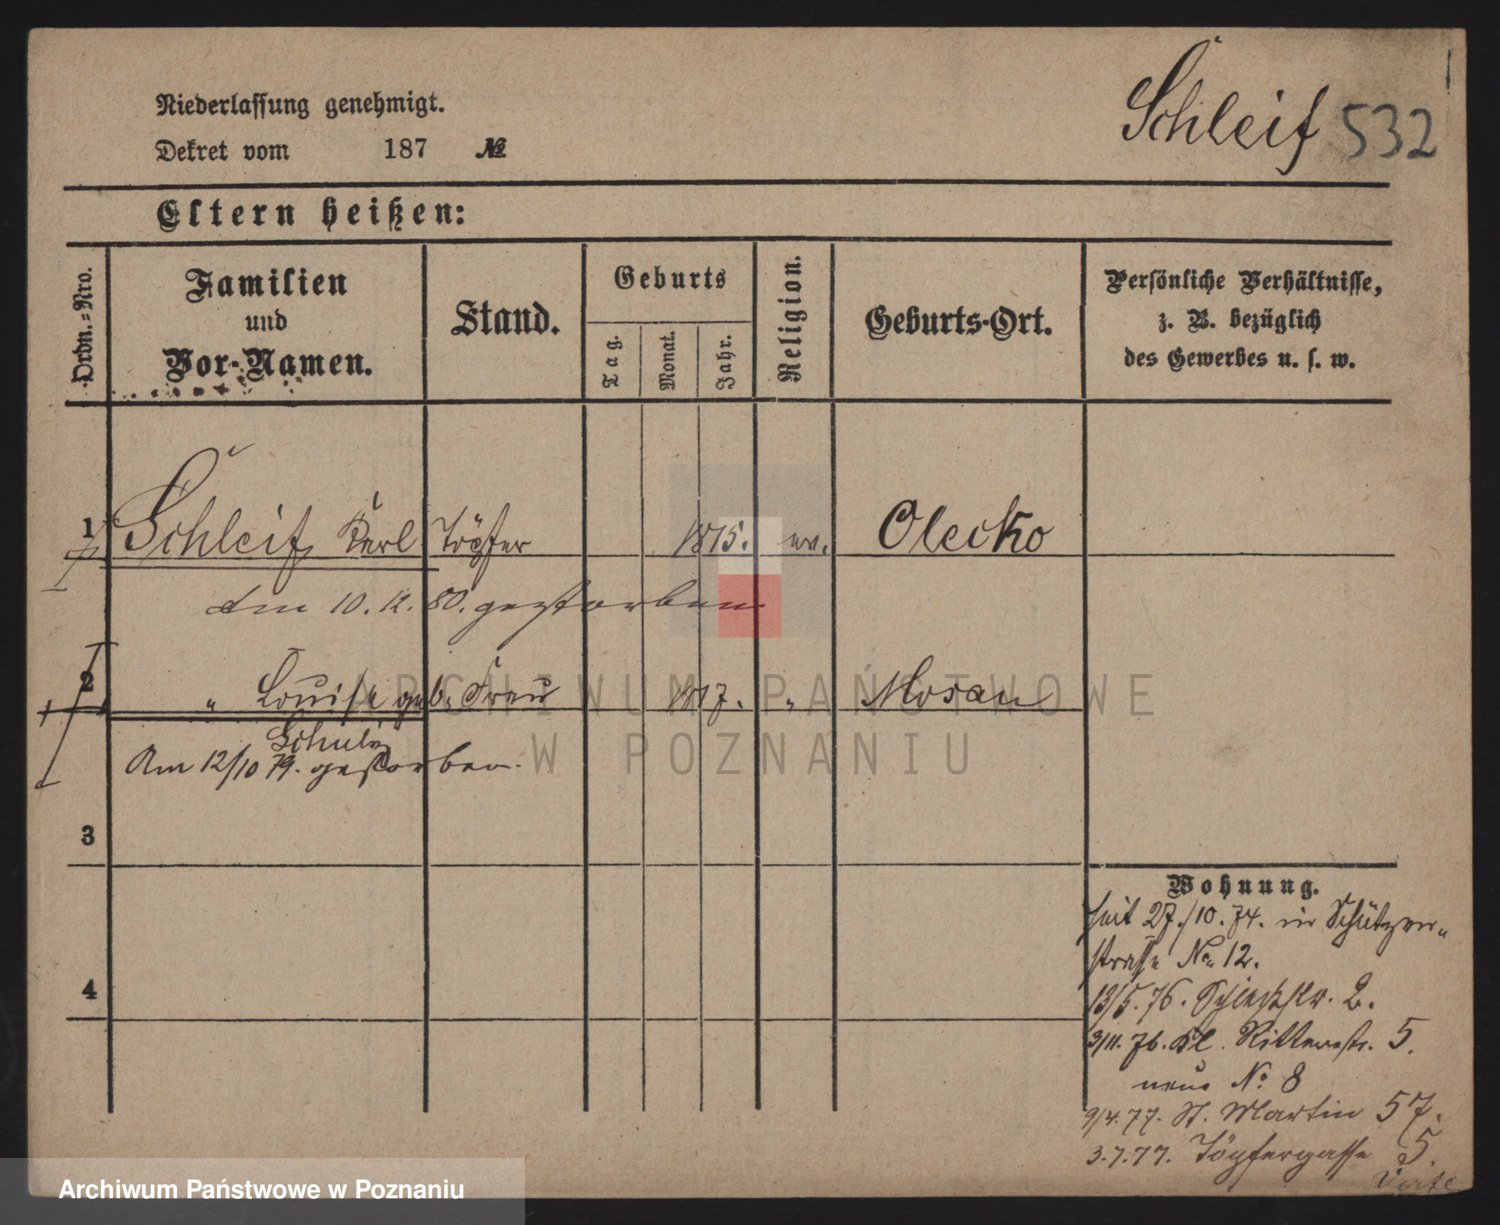 Schleif 532
Niederlassung genehmigt.
Dekret vom 187 №
Eltern heißen:
Ordn.-Nro.
Familien
und
Vor-Namen.
Stand.
Geburts
Tag.
Monat.
Jahr.
Religion.
Geburts-Ort.
Persönliche Verhältnisse,
z. B. bezüglich
des Gewerbes u. s. w.
1 Schleif Karl Töpfer 1815. ev. Olecko
Am 10. 12. 80. gestorben
2 " Louise geb. Frau 1817. " Mosau
Schulz
Am 12/10 79. gestorben.
3
4
Wohnung.
seit 27./10. 74. in Schützen-
strasse No 12.
13/5. 76. 2.
3/11. 76. Kl. Ritterstr. 5.
neue No 8
9/4. 77. St. Martin 57.
3.7.77. Töpfergasse 5.
Verte
ARCHIWUM PAŃSTWOWE
W POZNANIU
Archiwum Państwowe w Poznaniu